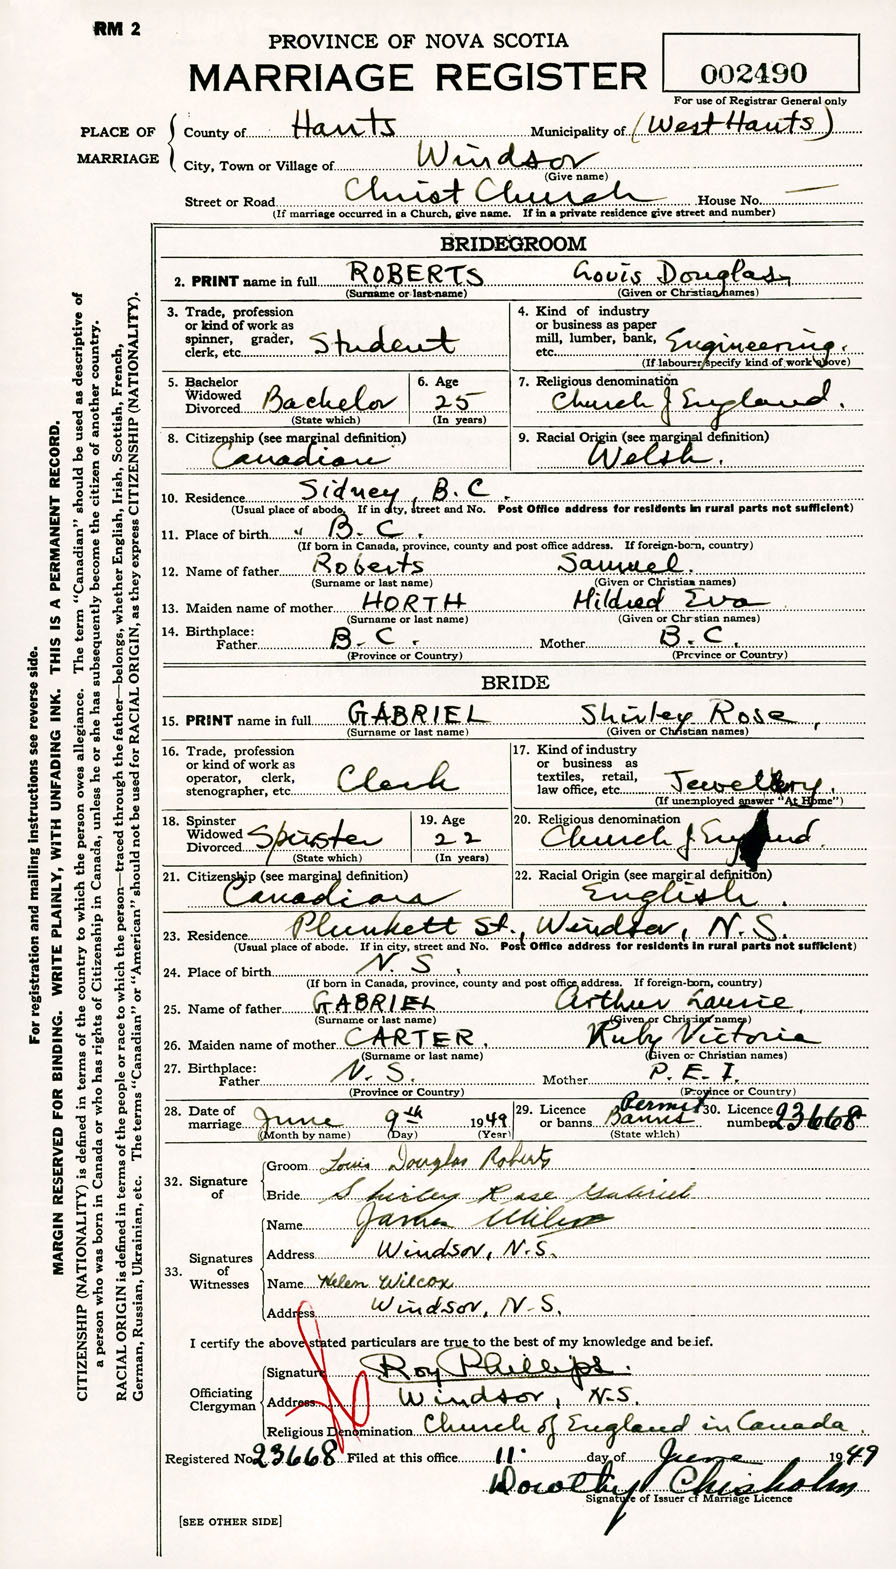 RM 2
PROVINCE OF NOVA SCOTIA
MARRIAGE REGISTER
002490
For use of Registrar General only
PLACE OF MARRIAGE
County of Hants Municipality of (West Hants)
City, Town or Village of Windsor
(Give name)
Street or Road Christ Church House No. —
(If marriage occurred in a Church, give name. If in a private residence give street and number)
BRIDEGROOM
2. PRINT name in full ROBERTS Louis Douglas
(Surname or last name) (Given or Christian names)
3. Trade, profession or kind of work as spinner, grader, clerk, etc. Student
4. Kind of industry or business as paper mill, lumber, bank, etc. Engineering.
(If labourer specify kind of work above)
5. Bachelor Widowed Divorced Bachelor
(State which)
6. Age 25
(In years)
7. Religious denomination
Church of England.
8. Citizenship (see marginal definition)
Canadian
9. Racial Origin (see marginal definition)
Welsh.
10. Residence Sidney, B.C.
(Usual place of abode, If in city, street and No. Post Office address for residents in rural parts not sufficient)
11. Place of birth " B.C.
(If born in Canada, province, county and post office address. If foreign-born, country)
12. Name of father Roberts Samuel.
(Surname or last name) (Given or Christian names)
13. Maiden name of mother HORTH Mildred Eva
(Surname or last name) (Given or Christian names)
14. Birthplace:
Father B.C. Mother B.C.
(Province or Country) (Province or Country)
BRIDE
15. PRINT name in full GABRIEL Shirley Rose,
(Surname or last name) (Given or Christian names)
16. Trade, profession or kind of work as operator, clerk, stenographer, etc. Clerk
17. Kind of industry or business as textiles, retail, law office, etc. Jewellery.
(If unemployed answer "At Home")
18. Spinster Widowed Divorced Spinster
(State which)
19. Age 22
(In years)
20. Religious denomination
Church of England.
21. Citizenship (see marginal definition)
Canadian
22. Racial Origin (see marginal definition)
English.
23. Residence Plunkett St., Windsor, N.S.
(Usual place of abode. If in city, street and No. Post Office address for residents in rural parts not sufficient)
24. Place of birth N.S.
(If born in Canada, province, county and post office address. If foreign-born, country)
25. Name of father GABRIEL Arthur Laurie,
(Surname or last name) (Given or Christian names)
26. Maiden name of mother CARTER, Ruby Victoria
(Surname or last name) (Given or Christian names)
27. Birthplace:
Father N.S. Mother P.E.I.
(Province or Country) (Province or Country)
28. Date of marriage June 9th 1949
(Month by name) (Day) (Year)
29. Licence or banns Permit Banns
(State which)
30. Licence number 23668
32. Signature of
Groom Louis Douglas Roberts
Bride Shirley Rose Gabriel
33. Signatures of Witnesses
Name James
Address Windsor, N.S.
Name Helen Wilcox
Address Windsor, N.S.
I certify the above stated particulars are true to the best of my knowledge and belief.
Officiating Clergyman
Signature Roy Phillips.
Address Windsor, N.S.
Religious Denomination Church of England in Canada.
Registered No. 23668 Filed at this office 11. day of June 1949
Dorothy Chisholm
Signature of Issuer of Marriage Licence
[SEE OTHER SIDE]
For registration and mailing instructions see reverse side.
MARGIN RESERVED FOR BINDING. WRITE PLAINLY, WITH UNFADING INK. THIS IS A PERMANENT RECORD.
CITIZENSHIP (NATIONALITY) is defined in terms of the country to which the person owes allegiance. The term "Canadian" should be used as descriptive of
a person who was born in Canada or who has rights of Citizenship in Canada, unless he or she has subsequently become the citizen of another country.
RACIAL ORIGIN is defined in terms of the people or race to which the person—traced through the father—belongs, whether English, Irish, Scottish, French,
German, Russian, Ukrainian, etc. The terms "Canadian" or "American" should not be used for RACIAL ORIGIN, as they express CITIZENSHIP (NATIONALITY).